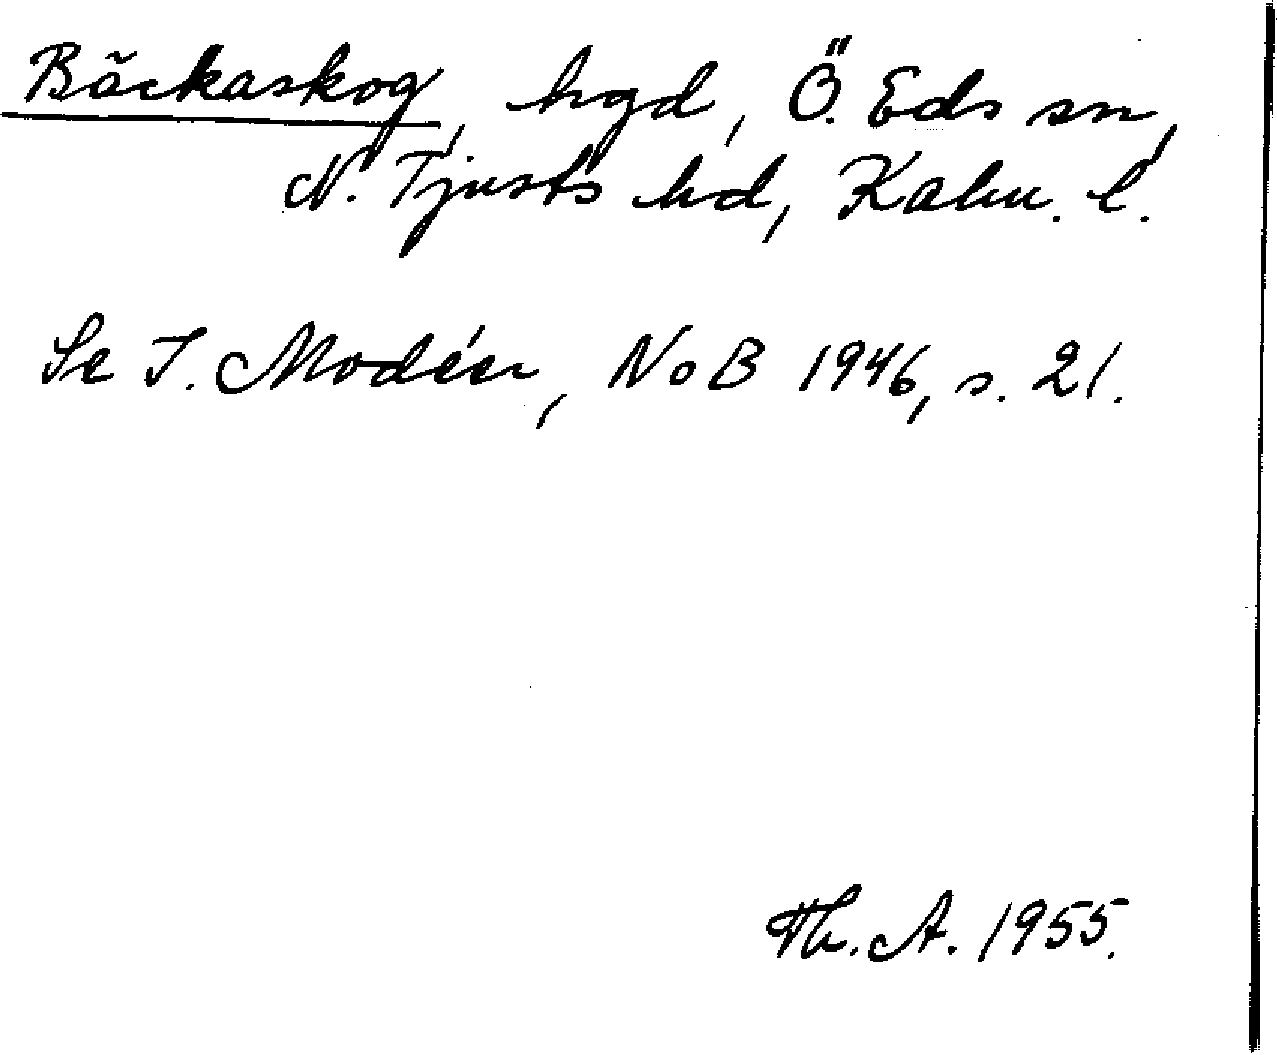 Bäckaskog, hgd, Ö. Eds sn,
N. Tjusts hd, Kalm. l.
Se I. Modéer, NoB 1946, s. 21.
Th. A. 1955.